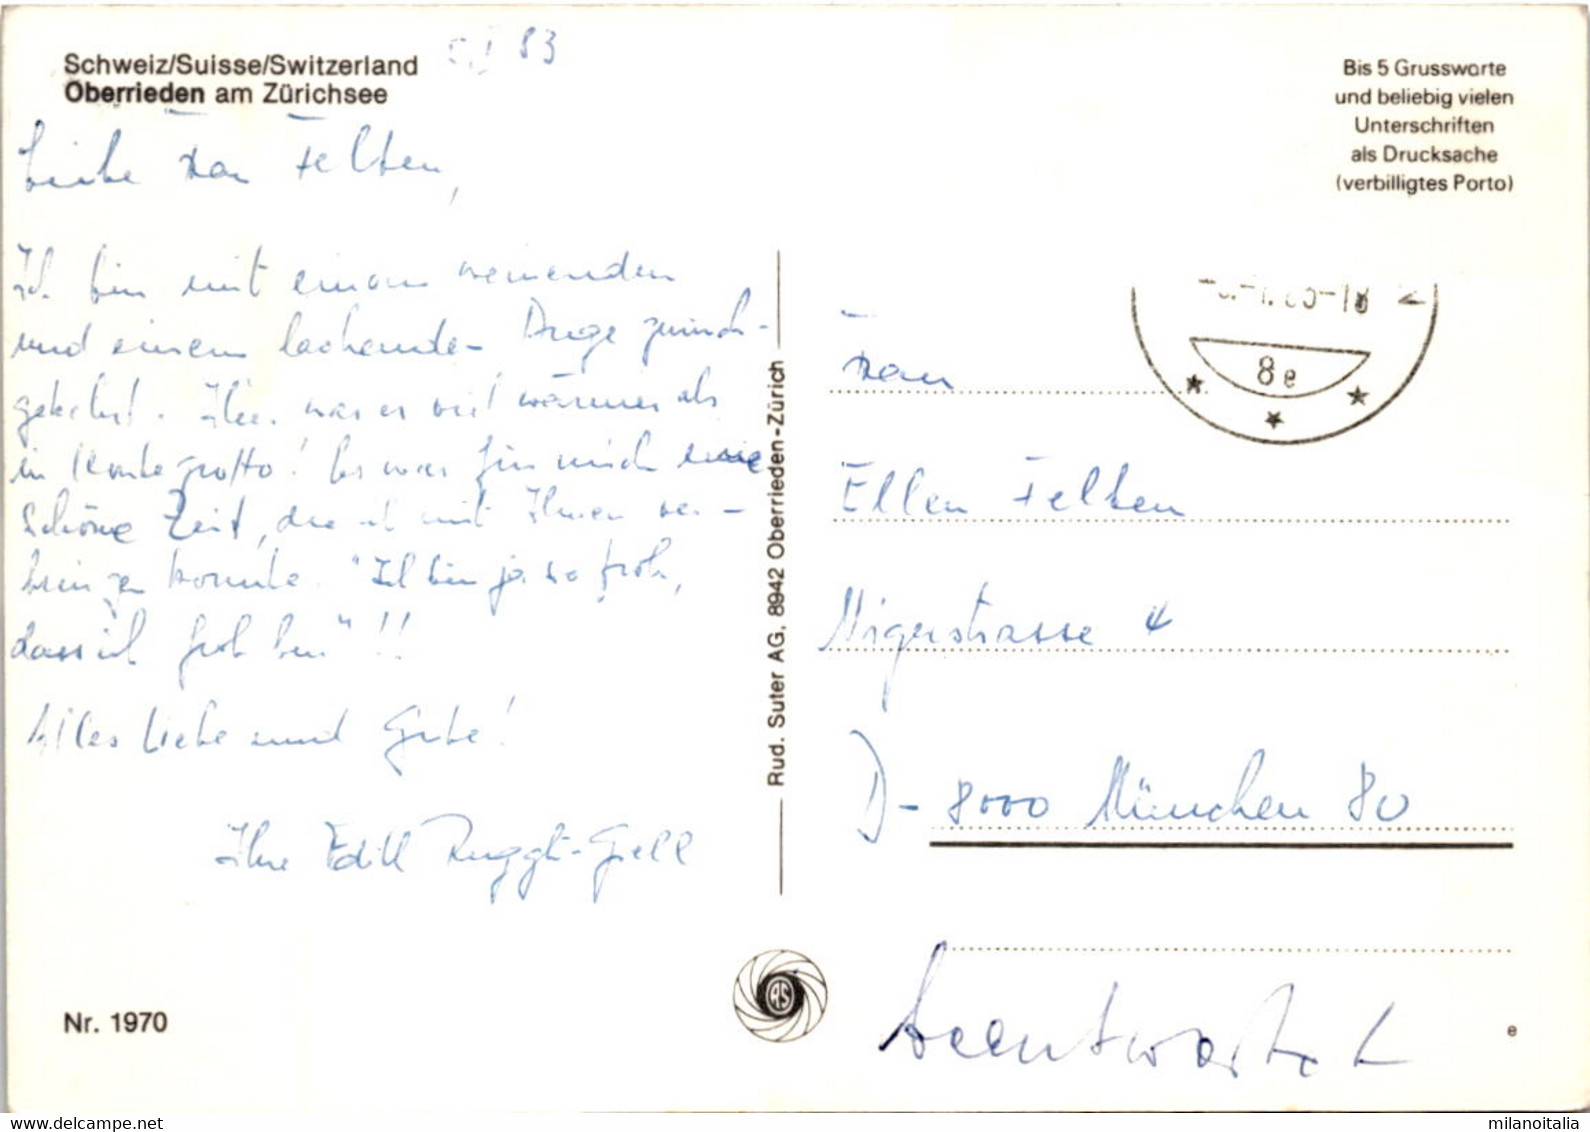 83
Schweiz/Suisse/Switzerland
Oberrieden am Zürichsee
Bis 5 Grussworte
und beliebig vielen
Unterschriften
als Drucksache
(verbilligtes Porto)
Liebe Frau Felten,
Ich bin mit einem weinenden
und einem lachenden Auge zurück-
gekehrt. Hier war es viel wärmer als
in Montegrotto! Es war für mich eine
schöne Zeit, die ich mit Ihnen ver-
bringen konnte. "Ich bin ja so froh,
dass ich froh bin"!!
Alles Liebe und Gute!
Ihre Edith
8e
Frau
Ellen Felten
Nigerstrasse 4
D-8000 München 80
Rud. Suter AG, 8942 Oberrieden-Zürich
Beantwortet
Nr. 1970
RS
e
milanoitalia